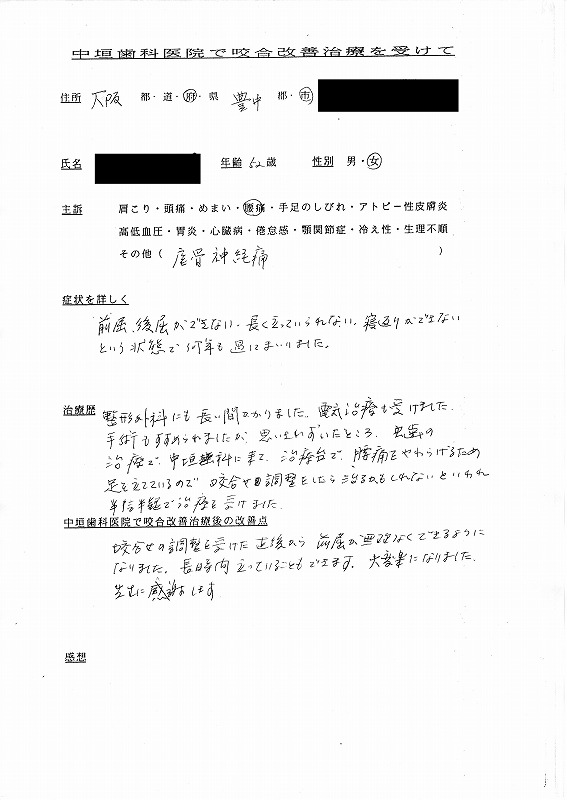 中垣歯科医院で咬合改善治療を受けて
住所 大阪 都・道・府・県 豊中 郡・市
氏名 年齢 52歳 性別 男・女
主訴 肩こり・頭痛・めまい・腰痛・手足のしびれ・アトピー性皮膚炎
高低血圧・胃炎・心臓病・倦怠感・顎関節症・冷え性・生理不順
その他（ 座骨神経痛 ）
症状を詳しく
前屈、後屈ができない、長く立っていられない、寝返りができない
という状態で何年も過ごまいりました。
治療歴 整形外科にも長い間かかりました。電気治療も受けました。
手術もすすめられましたが、思いきれずいたところ、虫歯の
治療で、中垣歯科に来て、治療台で、腰痛をやわらげるため
足を立てているので 咬合せの調整をしたら治るかもしれないといわれ
半信半疑で治療を受けました。
中垣歯科医院で咬合改善治療後の改善点
咬合せの調整を受けた直後から 前屈が無理なくできるように
なりました。長時間立っていることもできます。大変楽になりました。
先生に感謝します
感想